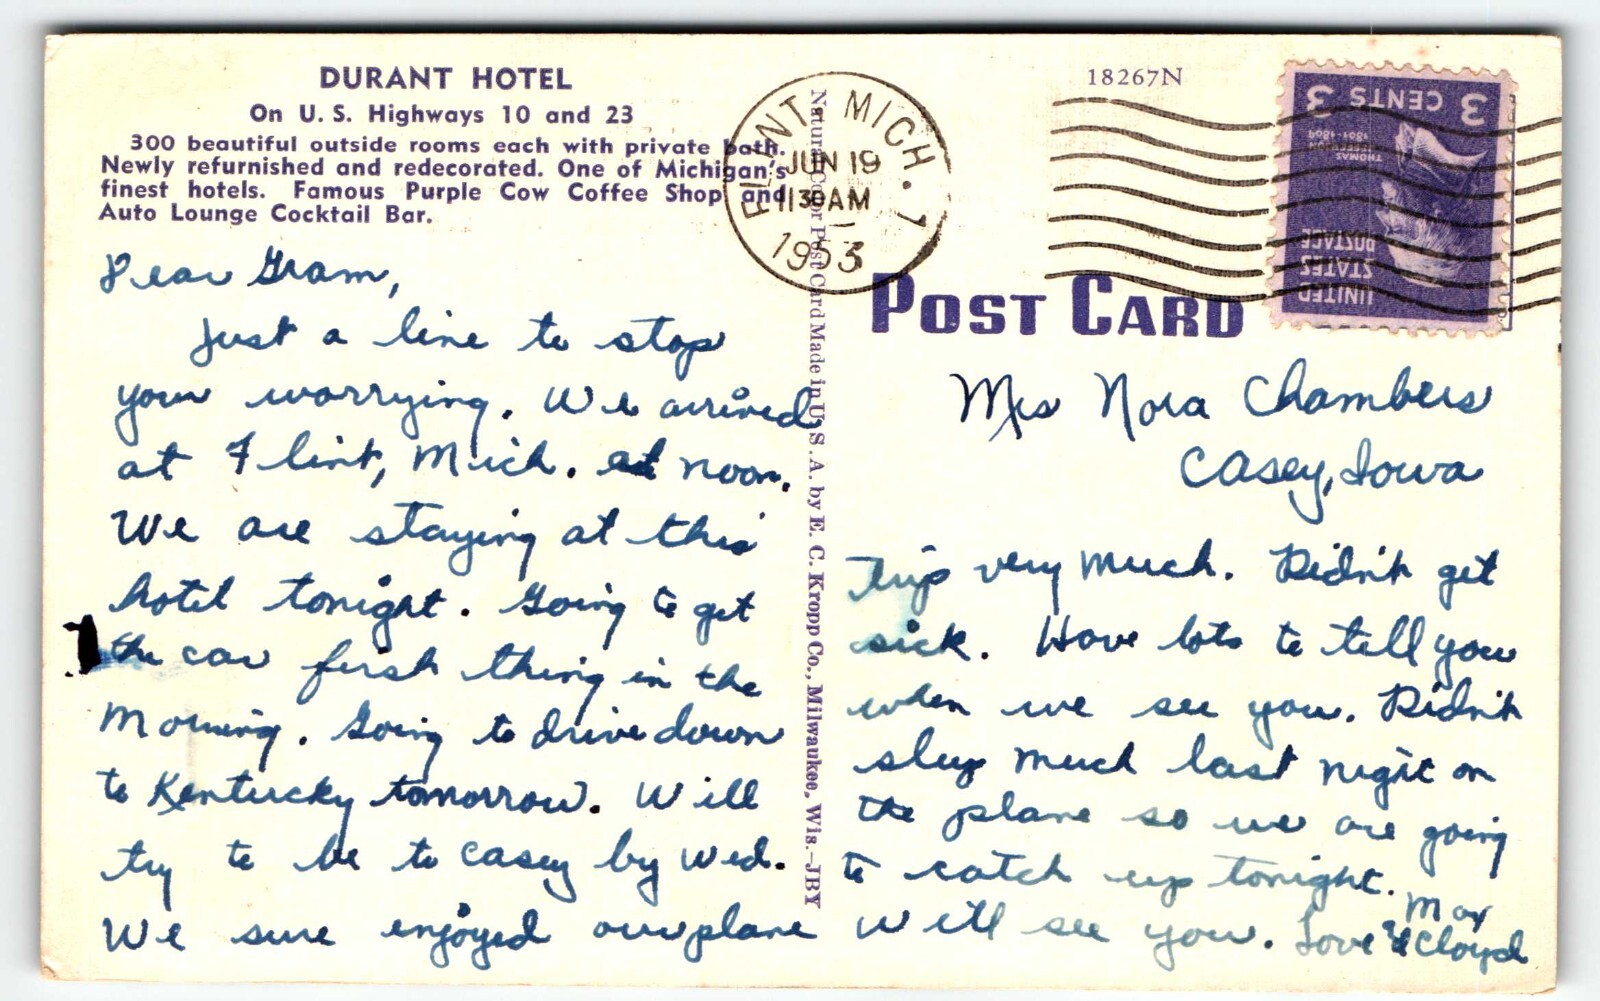 DURANT HOTEL
On U. S. Highways 10 and 23
300 beautiful outside rooms each with private bath.
Newly refurnished and redecorated. One of Michigan's
finest hotels. Famous Purple Cow Coffee Shop and
Auto Lounge Cocktail Bar.
Dear Gram,
Just a line to stop
your worrying. We arrived
at Flint, Mich. at noon.
We are staying at this
hotel tonight. Going to get
the car first thing in the
morning. Going to drive down
to Kentucky tomorrow. Will
try to be to Casey by Wed.
We sure enjoyed our plane
Natural Color Post Card Made in U. S. A. by E. C. Kropp Co., Milwaukee, Wis.—JBY
FLINT, MICH. 1
JUN 19
11 30 AM
1953
18267N
3 CENTS 3
THOMAS
JEFFERSON
1801-1809
UNITED
STATES
POSTAGE
POST CARD
Mrs Nora Chambers
Casey, Iowa
trip very much. Didn't get
sick. Have lots to tell you
when we see you. Didn't
sleep much last night on
the plane so we are going
to catch up tonight.
We'll see you. Love Max
& Cloyd